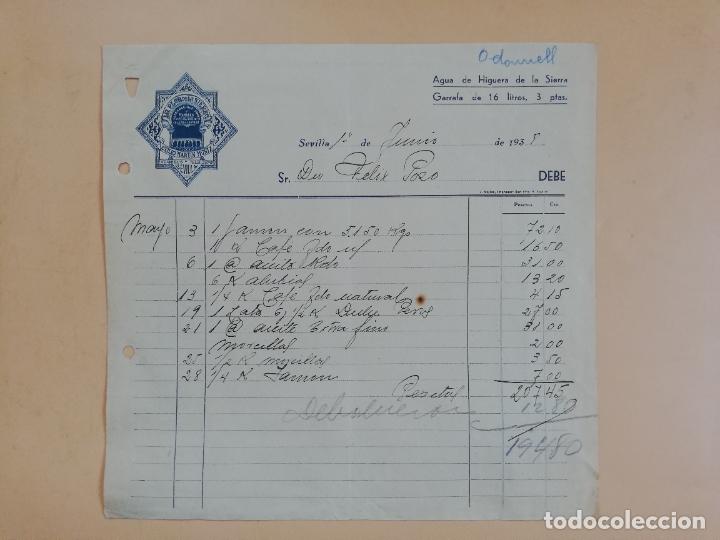 Odonnell
Agua de Higuera de la Sierra
Garrafa de 16 litros, 3 ptas.
Sevilla 1º de Junio de 1938
Sr. Dn Félix Pozo DEBE
Pesetas Cts.
Mayo 3 1 Jamon con 5.150 Kgo 72 10
K Café Tdo 16 50
6 1 @ aceite 31 00
6 K alubias 13 20
13 1/4 K Café Tdo natural 4 15
19 1 Lata 1/2 K Dulce 27 00
21 1 @ aceite fino 31 00
Morcillas 2 00
25 1/2 K morcillas 3 50
28 1/4 K Jamon 7 00
Pesetas 207 45
Debolucion 12 80
194 80
todocoleccion.net